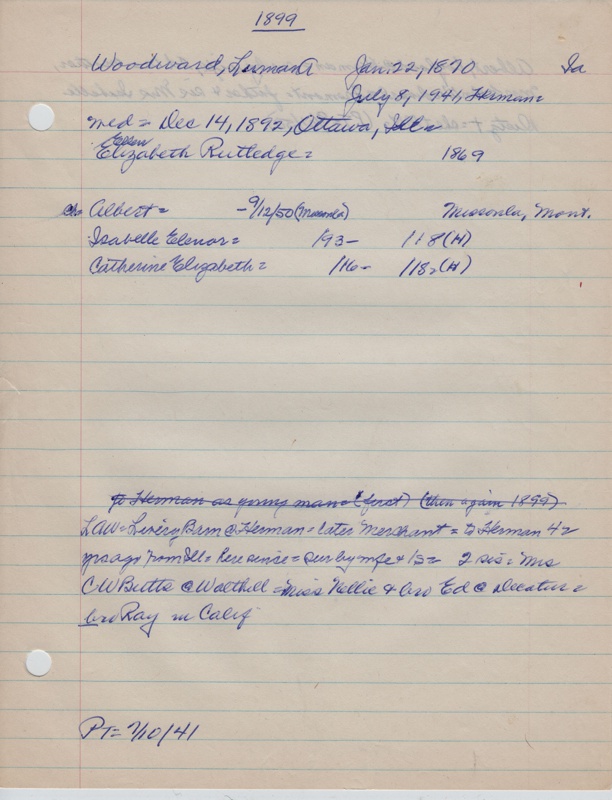 1899
Woodward, Luman A Jan. 22, 1870 Ia
July 8, 1941, Herman=
med= Dec 14, 1892, Ottawa, Ill=
Ellen
Elizabeth Rutledge= 1869
ch= Albert= -9/12/50 (Missoula) Missoula, Mont.
Isabelle Elenor= /93- /118(H)
Catherine Elizabeth= /16- /118(H)
to Herman as young man= (first) (then again 1899)
LAW= Livery Barn @ Herman= later Merchant= to Herman 42
yrs ago from Ill= here since= sur by wife + 1s= 2 sis= Mrs
C W Butts @ Walthill= Miss Nellie & bro Ed @ Decatur=
bro Ray in Calif
PT= 7/10/41